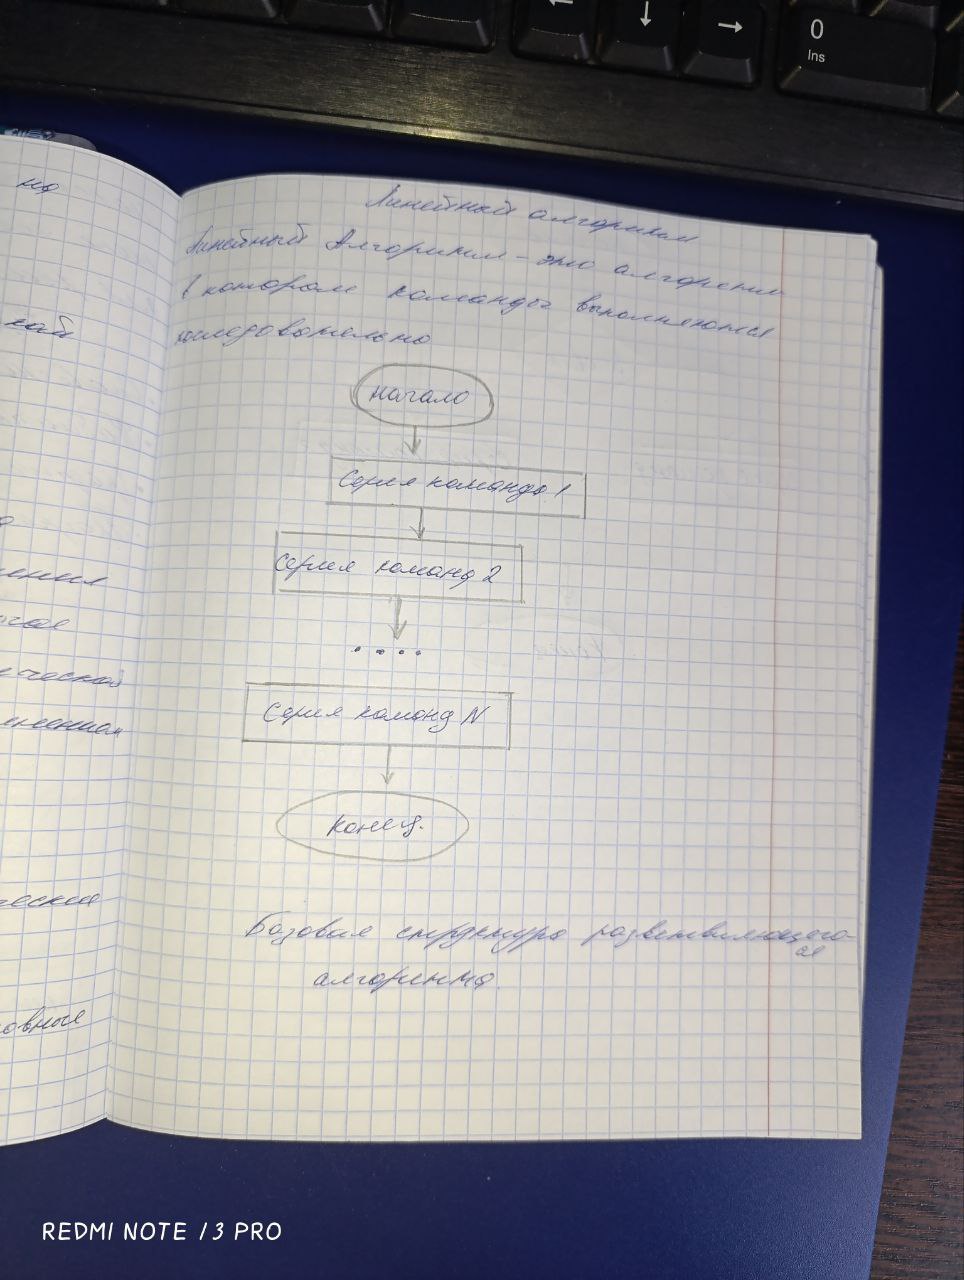 0
Ins
ма
кай
ения
ческой
ческие
овные
Линейный алгоритм
Линейный Алгоритм - это алгоритм
в котором команды выполняются
последовательно
начало
Серия команда 1
Серия команд 2
....
Серия команд N
конец.
Базовая структура разветвляющего-
ся
алгоритма.
REDMI NOTE 13 PRO